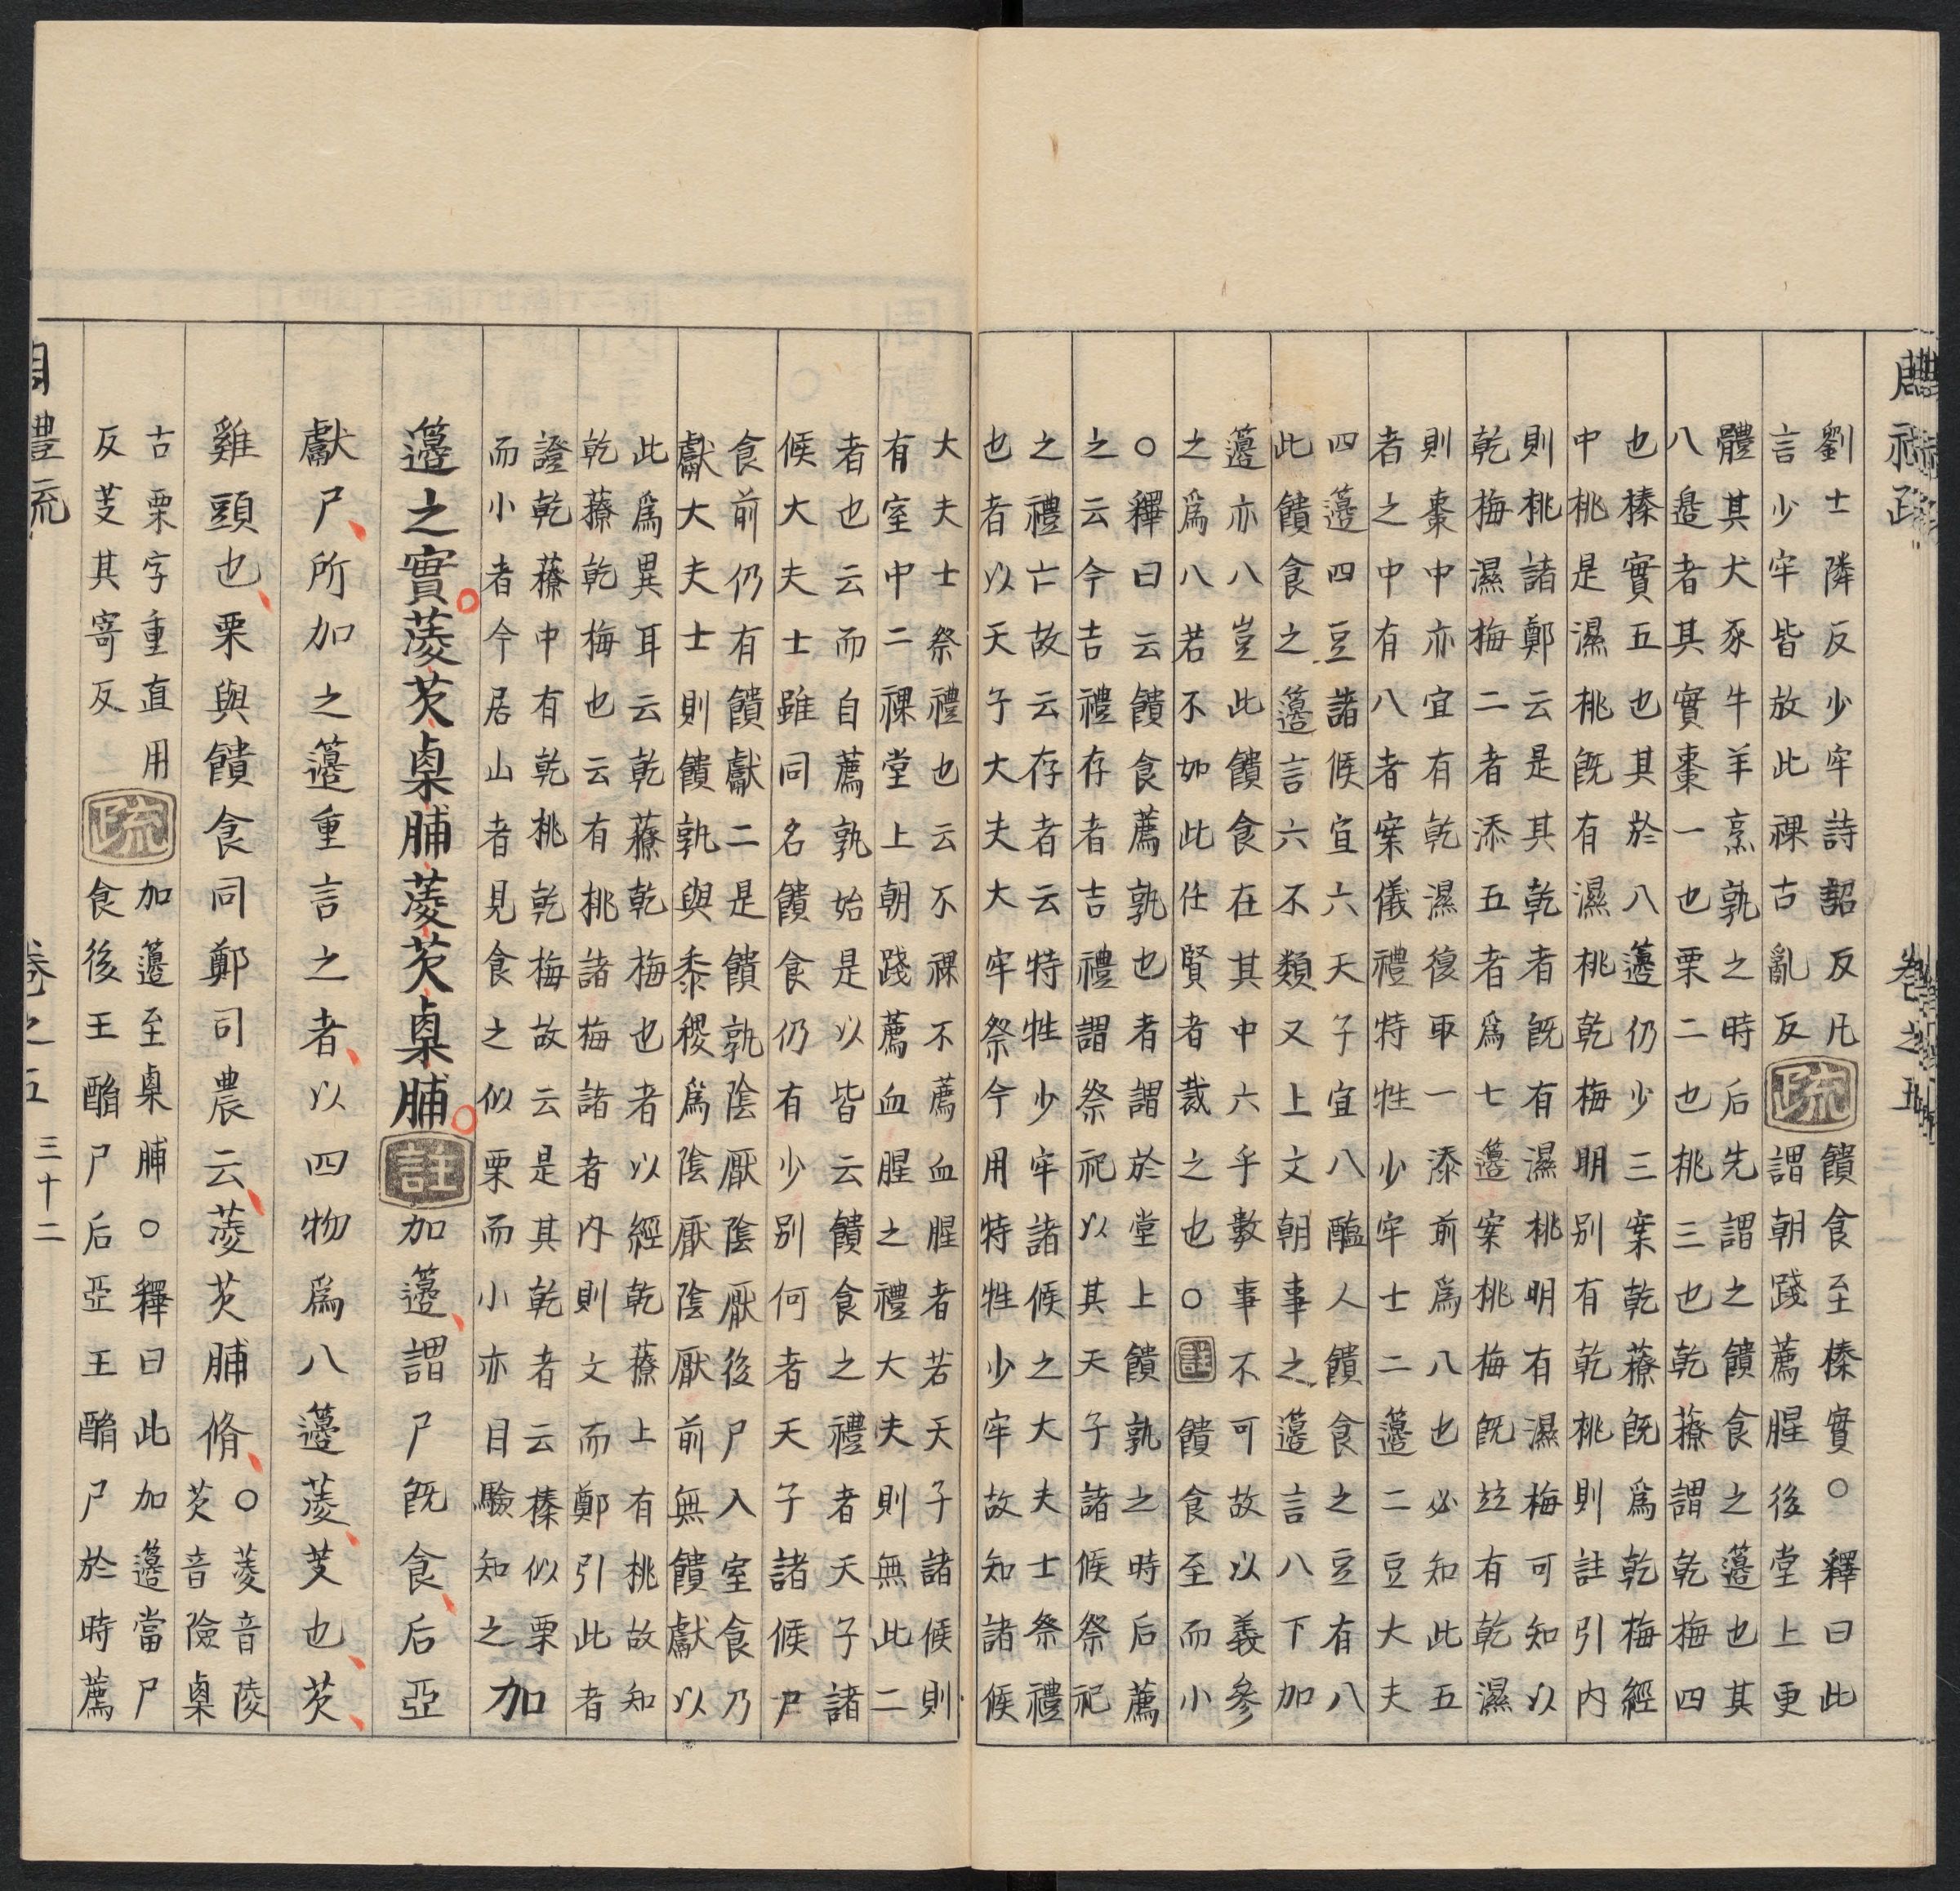 周禮疏 卷之五 三十一
劉士隣反少牢詩詔反凡疏饋食至榛實○釋曰此
言少牢皆放此祼古亂反謂朝踐薦腥後堂上更
體其犬豕牛羊烹孰之時后先謂之饋食之籩也其
八籩者其實棗一也栗二也桃三也乾䕩謂乾梅四
也榛實五也其於八籩仍少三案乾䕩既爲乾梅經
中桃是濕桃既有濕桃乾梅明別有乾桃則註引內
則桃諸鄭云是其乾者既有濕桃明有濕梅可知以
乾梅濕梅二者添五者爲七籩案桃梅既竝有乾濕
則棗中亦宜有乾濕復取一添前爲八也必知此五
者之中有八者案儀禮特牲少牢士二籩二豆大夫
四籩四豆諸侯宜六天子宜八醢人饋食之豆有八
此饋食之籩言六不類又上文朝事之籩言八下加
籩亦八豈此饋食在其中六乎數事不可故以義參
之爲八若不如此任賢者裁之也○註饋食至而小
○釋曰云饋食薦孰也者謂於堂上饋孰之時后薦
之云今吉禮存者吉禮謂祭祀以其天子諸侯祭祀
之禮亡故云存者云特牲少牢諸侯之大夫士祭禮
也者以天子大夫大牢祭今用特牲少牢故知諸侯
大夫士祭禮也云不祼不薦血腥者若天子諸侯則
有室中二祼堂上朝踐薦血腥之禮大夫則無此二
者也云而自薦孰始是以皆云饋食之禮者天子諸
侯大夫士雖同名饋食仍有少別何者天子諸侯尸
食前仍有饋獻二是饋孰陰厭陰厭後尸入室食乃
獻大夫士則饋孰與黍稷爲陰厭陰厭前無饋獻以
此爲異耳云乾䕩乾梅也者以經乾䕩上有桃故知
乾䕩乾梅也云有桃諸梅諸者內則文而鄭引此者
證乾䕩中有乾桃乾梅故云是其乾者云榛似栗
而小者今居山者見食之似栗而小亦目驗知之加
籩之實蔆芡㮚脯蔆芡㮚脯註加籩謂尸既食后亞
獻尸所加之籩重言之者以四物爲八籩蔆芰也芡
雞頭也栗與饋食同鄭司農云蔆芡脯脩○蔆音陵
芡音險㮚
古栗字重直用
反芰其寄反疏加籩至㮚脯○釋曰此加籩當尸
食後王酳尸后亞王酳尸於時薦
周禮疏 卷之五 三十二